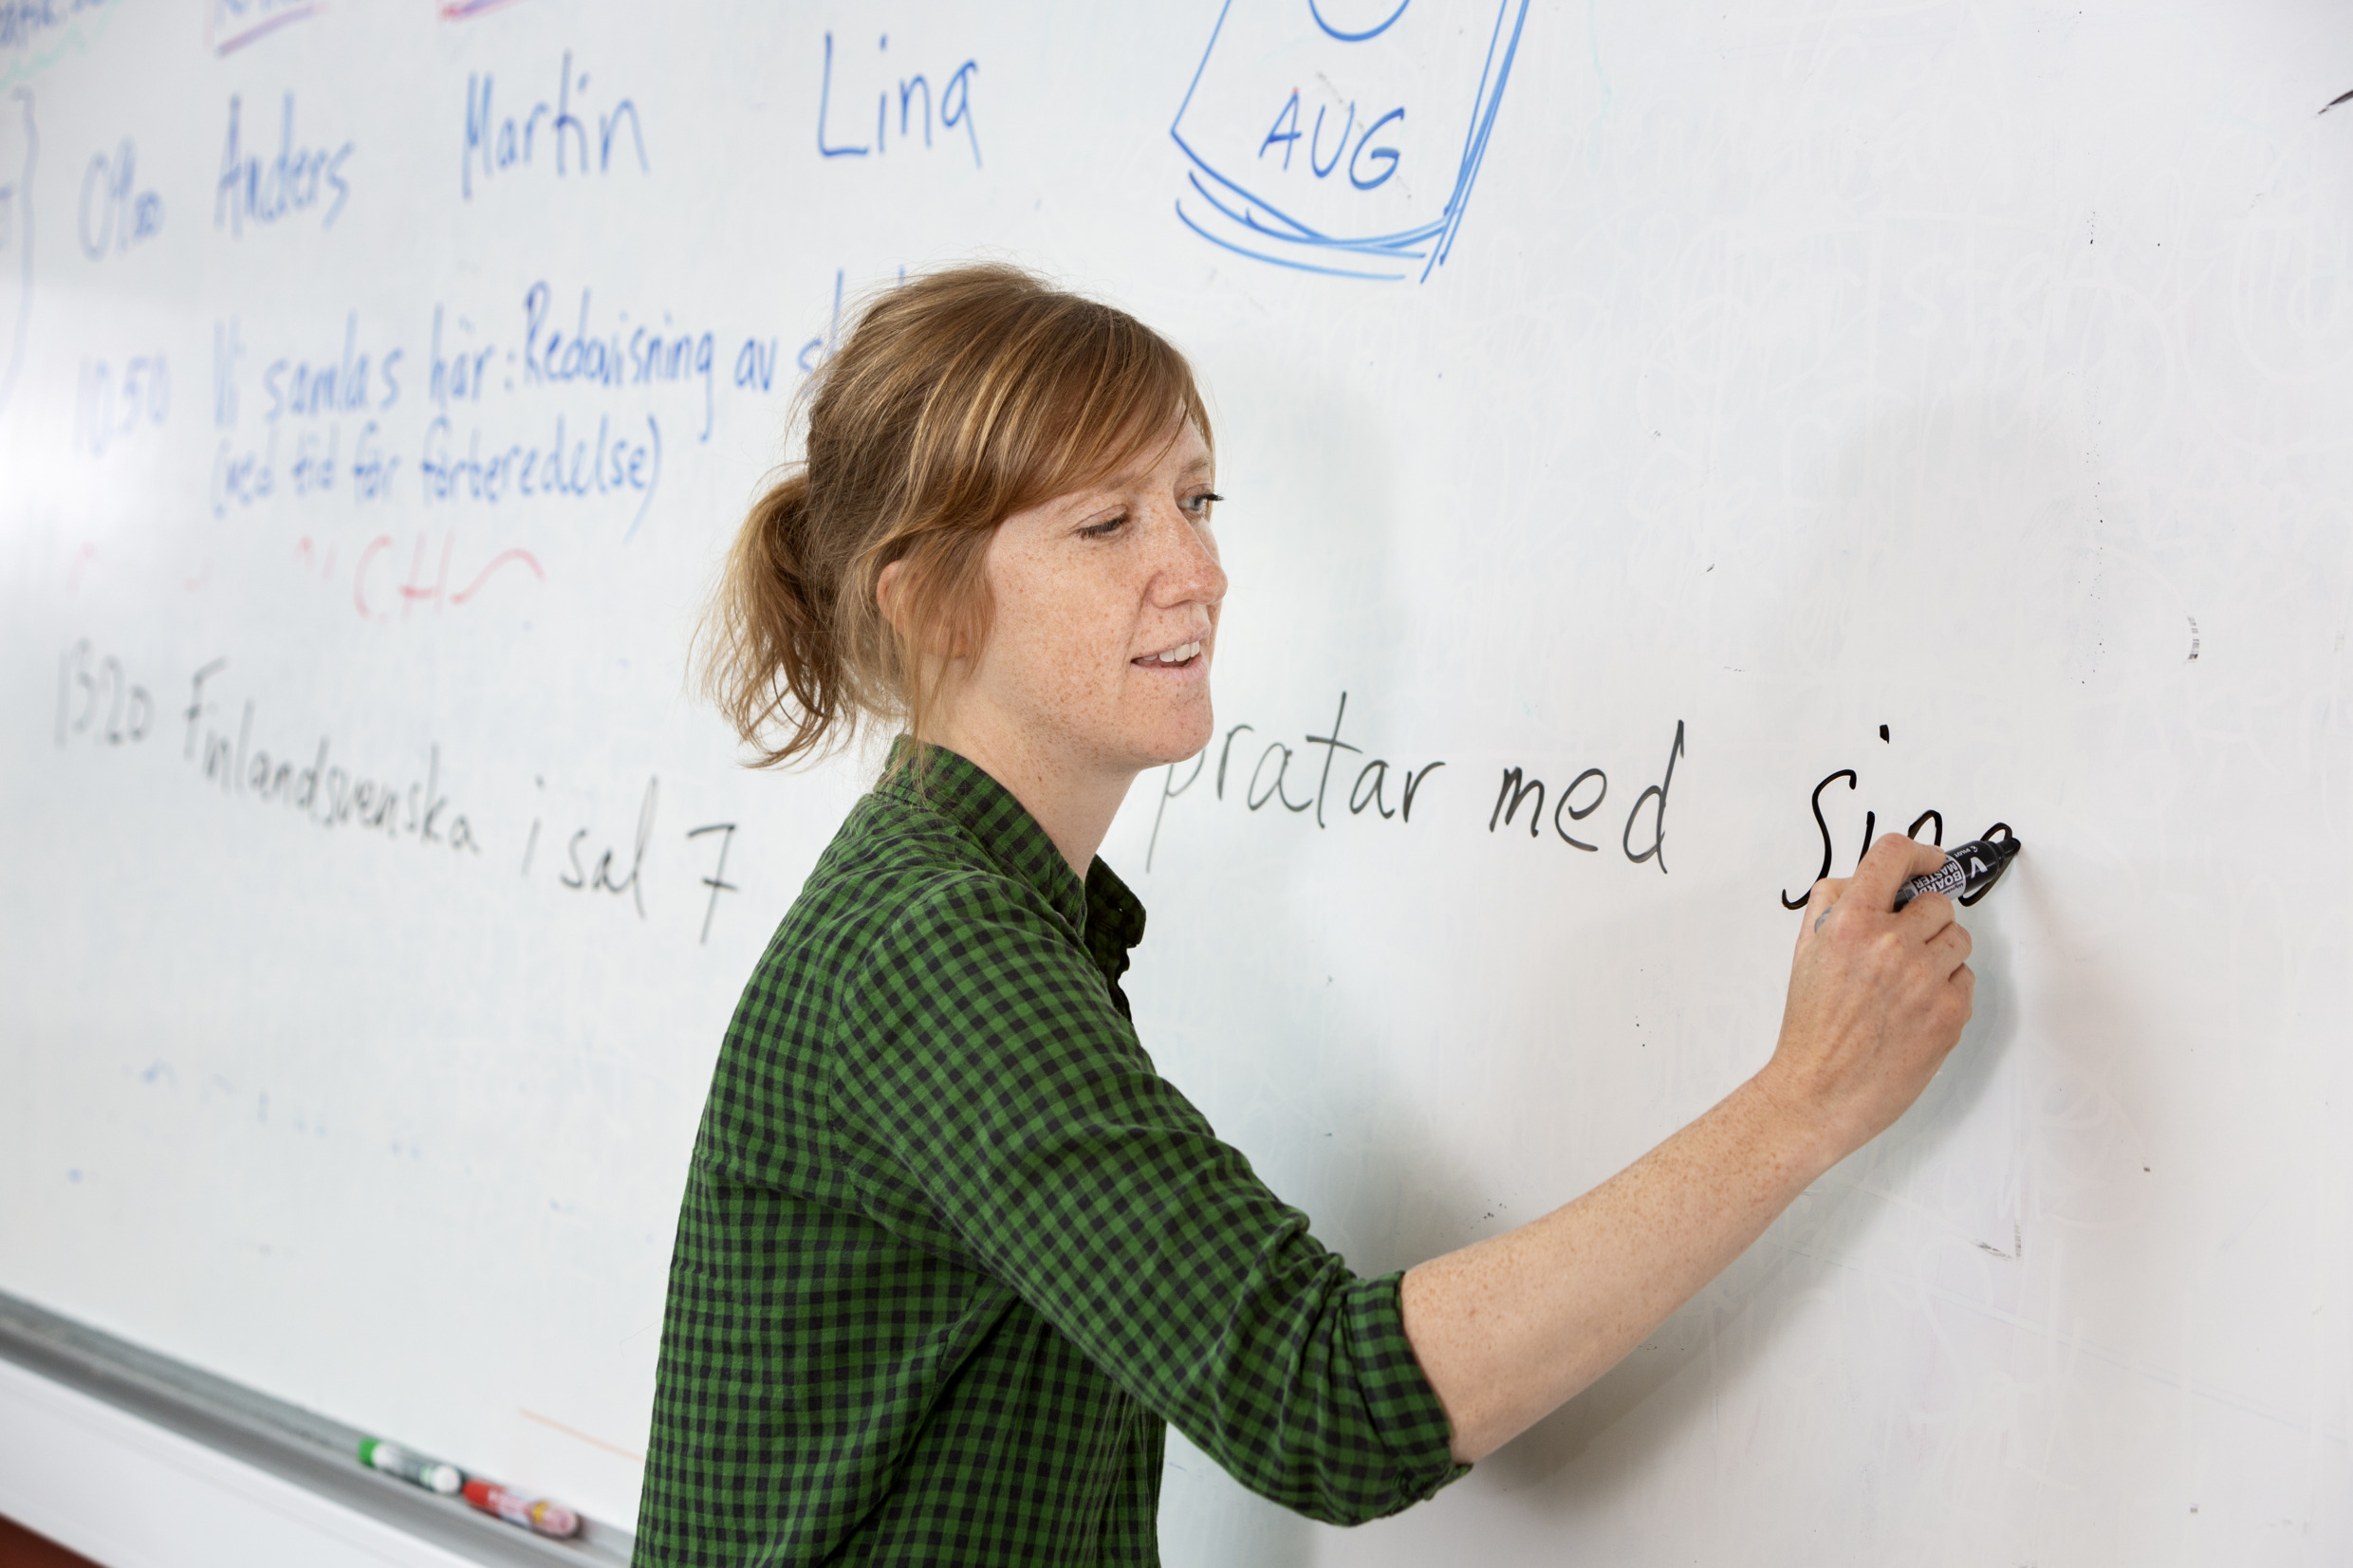 AUG
09.00 Anders Martin Lina
10.50 Vi samlas här: Redovisning av
(med tid för förberedelse)
13.20 Finlandsvenska i sal 7
pratar med sina
BOARD
MASTER